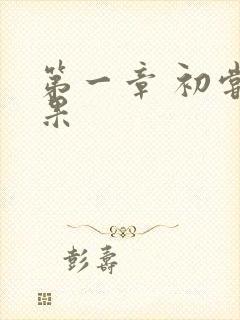 第一章 初尝
果
彭壽